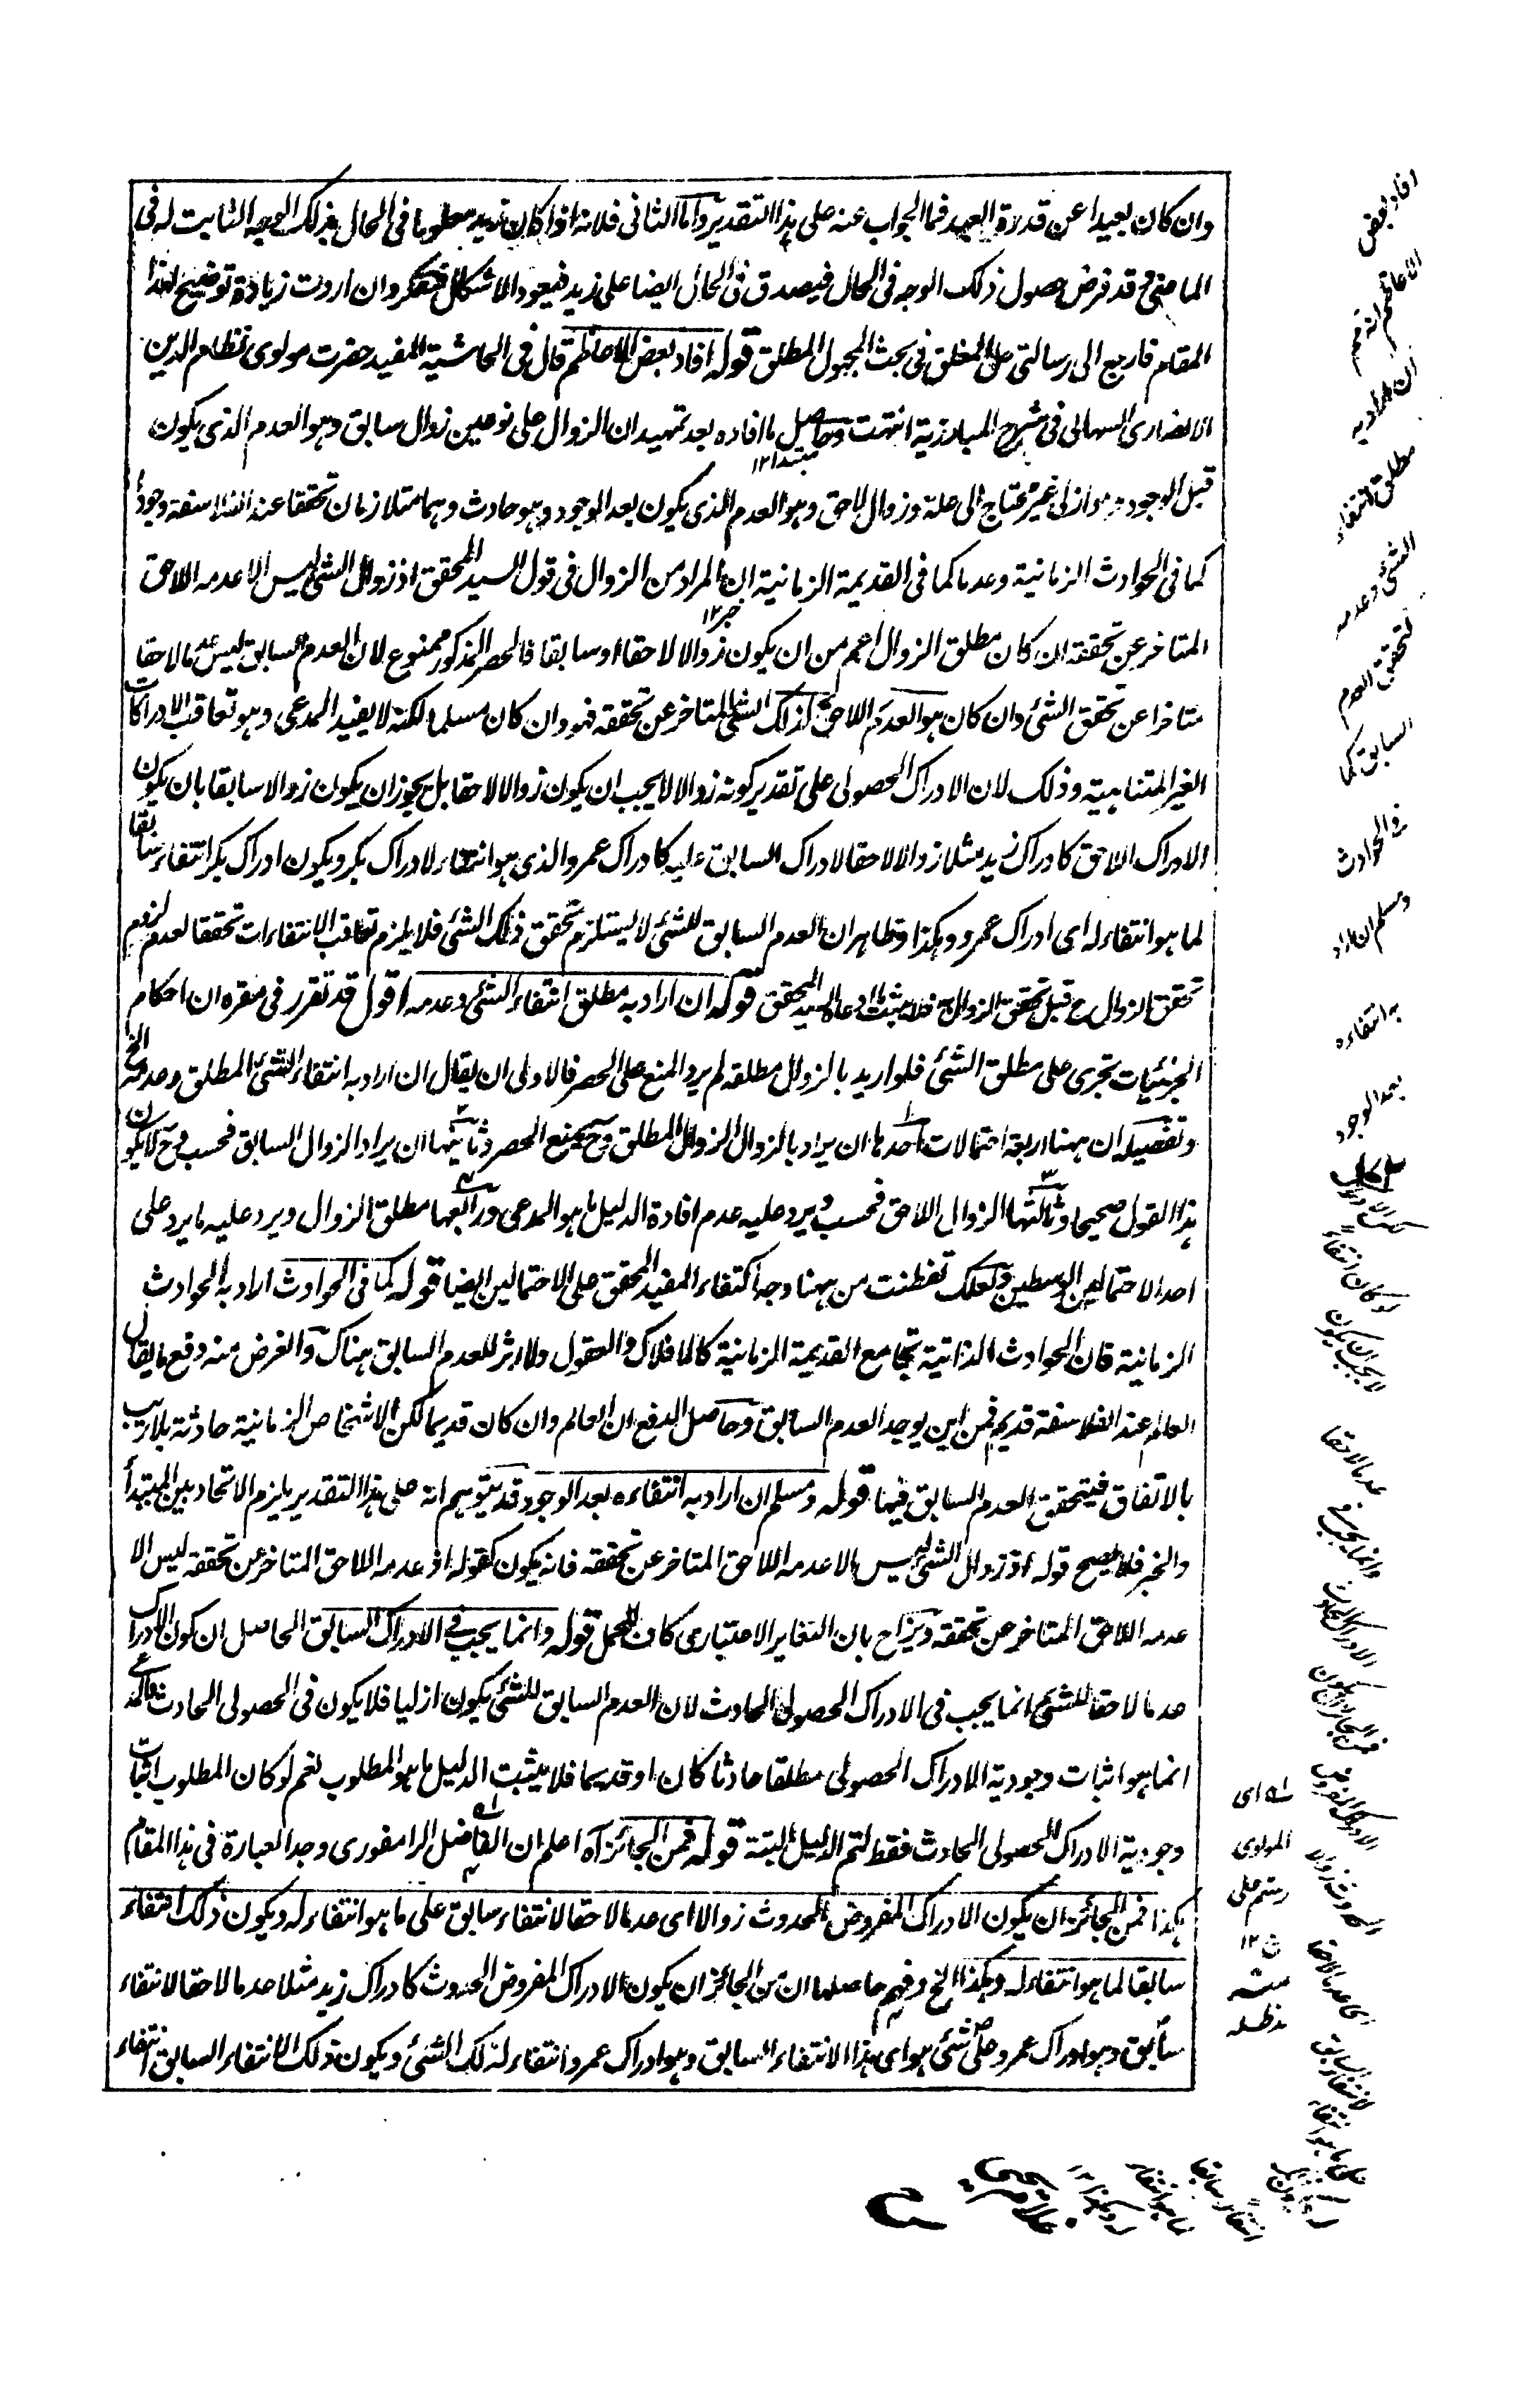 وان كان بعيدا عن قدرة العبد فما الجواب عنه على هذا التقدير واما الثانى فلانه اذا كان زيد معلوما فى الحال بذلك الوجه الثابت له فى
الماضى وقد فرض حصول ذلك الوجه فى الحال فيصدق فى الحال ايضا على زيد فيعود الاشكال فتفكر وان اردت زيادة توضيح لهذا
المقام فارجع الى رسالتى حل المغلق فى بحث المجهول المطلق قوله افاد بعض الاعاظم قال فى الحاشية المفيد حضرت مولوى نظام الدين
الانصارى السهالى فى شرح المبارزية انتهت وحاصل ما افاده بعد تمهيد ان الزوال على نوعين زوال سابق وهو العدم الذى يكون
مبتدا ١٢
قبل الوجود وهو ازلى غير محتاج الى علة وزوال لاحق وهو العدم الذى يكون بعد الوجود وهو حادث وهما متلازمان تحققا عند الفلاسفة وجودا
كما فى الحوادث الزمانية وعدما كما فى القديمة الزمانية ان المراد من الزوال فى قول السيد المحقق اذ زوال الشئ ليس الا عدمه اللاحق
خبر ١٢
المتاخر عن تحققه ان كان مطلق الزوال اعم من ان يكون زوالا لاحقا او سابقا فالحصر المذكور ممنوع لان العدم السابق ليس عدما لاحقا
متاخرا عن تحقق الشئ وان كان هو العدم اللاحق لذلك الشئ المتاخر عن تحققه فهو وان كان مسلما لكنه لا يفيد المدعى وهو تعاقب الادراكات
الغير المتناهية وذلك لان الادراك الحصولى على تقدير كونه زوالا لا يجب ان يكون زوالا لاحقا بل يجوز ان يكون زوالا سابقا بان يكون
الادراك اللاحق كادراك زيد مثلا زوالا لاحقا لادراك السابق عليه كادراك عمرو الذى هو انتفاء لادراك بكر ويكون ادراك بكر انتفاء سابقا
لما هو انتفاء له اى ادراك عمرو وهكذا وظاهر ان العدم السابق للشئ لا يستلزم تحقق ذلك الشئ فلا يلزم تعاقب الانتفاءات تحققا لعدم لزوم
تحقق الزوال ح قبل تحقق الزوال فلا يثبت ما ادعاه السيد المحقق قوله ان اراد به مطلق انتفاء الشئ وعدمه اقول قد تقرر فى مقره ان احكام
الجزئيات تجرى على مطلق الشئ فلو اريد بالزوال مطلقه لم يرد المنع على الحصر فالاولى ان يقال ان اراد به انتفاء الشئ المطلق وعدمه الخ
وتفصيله ان ههنا اربعة احتمالات احدها ان يراد بالزوال الزوال المطلق وح يمنع الحصر وثانيها ان يراد الزوال السابق فحسب وح لا يكون
هذا القول صحيحا وثالثها الزوال اللاحق فحسب ويرد عليه عدم افادة الدليل ما هو المدعى ورابعها مطلق الزوال ويرد عليه ما يرد على
احد الاحتمالين الوسطين ولعلك تفطنت من ههنا وجه اكتفاء المفيد المحقق على الاحتمالين ايضا قوله كما فى الحوادث اراد به الحوادث
الزمانية فان الحوادث الذاتية تجامع القديمة الزمانية كالافلاك والعقول ولا اثر للعدم السابق هناك والغرض منه دفع ما يقال
العالم عند الفلاسفة قديم فمن اين يوجد العدم السابق وحاصل الدفع ان العالم وان كان قديما لكن الاشخاص الزمانية حادثة بلا ريب
بالاتفاق فيتحقق العدم السابق فيها قوله ومسلم ان اراد به انتفاءه بعد الوجود قد يتوهم انه على هذا التقدير يلزم الاتحاد بين المبتدأ
والخبر فلا يصح قوله اذ زوال الشئ ليس الا عدمه اللاحق المتاخر عن تحققه فانه يكون كقوله اذ عدمه اللاحق المتاخر عن تحققه ليس الا
عدمه اللاحق المتاخر عن تحققه ويزاح بان التغاير الاعتبارى كاف للحمل قوله وانما يجب فى الادراك السابق الحاصل ان كون الادراك
عدما لاحقا للشئ انما يجب فى الادراك الحصولى الحادث لان العدم السابق للشئ يكون ازليا فلا يكون فى الحصولى الحادث
انما هو اثبات وجودية الادراك الحصولى مطلقا حادثا كان او قديما فلا يثبت الدليل ما هو المطلوب نعم لو كان المطلوب اثبات
وجودية الادراك الحصولى الحادث فقط لتم الدليل البتة قوله فمن الجائز آه اعلم ان الفاضل الرامفورى وجد العبارة فى هذا المقام
هكذا فمن الجائز ان يكون الادراك المفروض الحدوث زوالا اى عدما لاحقا لانتفاء سابق على ما هو انتفاء له ويكون ذلك انتفاء
سابقا لما هو انتفاء له وهكذا الخ وفهم حاصلها ان من الجائز ان يكون الادراك المفروض الحدوث كادراك زيد مثلا عدما لاحقا لانتفاء
سابق وهو ادراك عمرو على شئ هو اى هذا الانتفاء السابق وهو ادراك عمرو انتفاء لذلك الشئ ويكون ذلك الانتفاء السابق انتفاء
افاد بعض
الاعاظم انه
ان اراد به
مطلق انتفاء
الشئ وعدمه
لتحقق العدم
السابق كما
فى الحوادث
ومسلم ان اراد
به انتفاءه
بعد الوجود
لا يجب ان يكون
عدما لاحقا
وانما يجب فى
اى
المولوى
رستم على
١٢
منه
مدظله